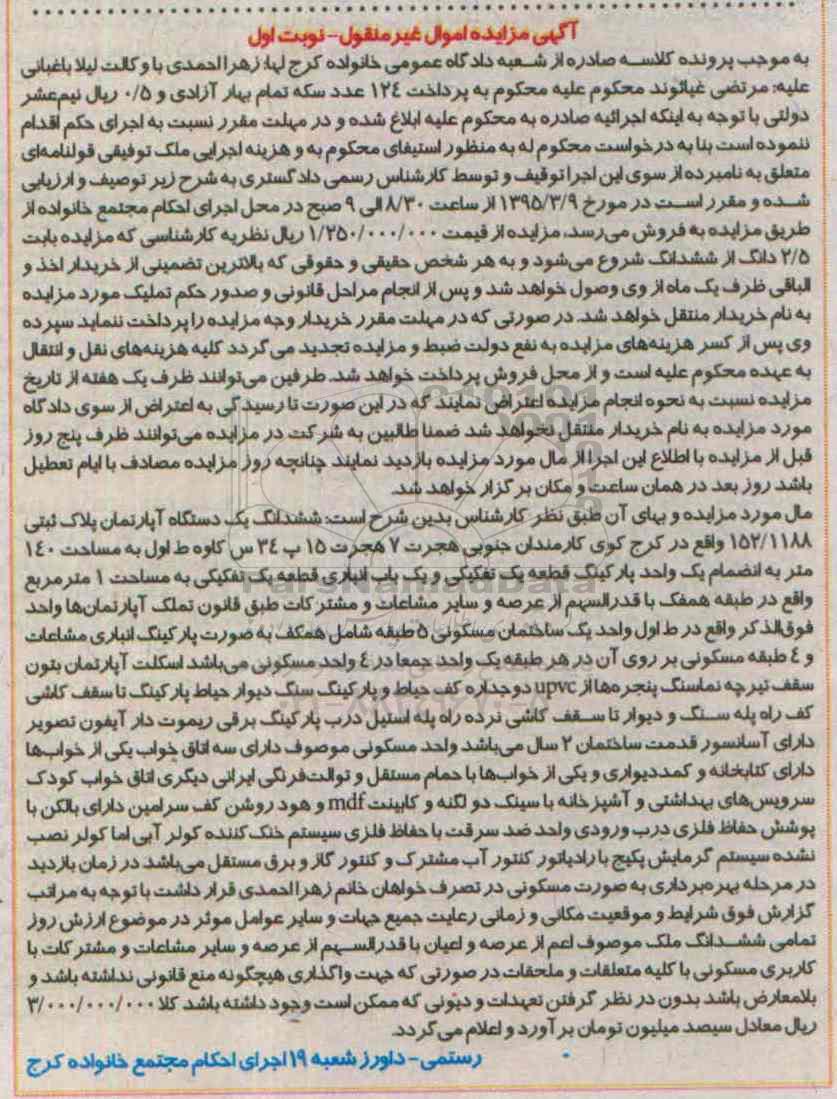 آگهی مزایده اموال غیرمنقول - نوبت اول
به موجب پرونده کلاسه صادره از شعبه دادگاه عمومی خانواده کرج لها: زهرا احمدی با وکالت لیلا باغبانی
علیه: مرتضی غیاثوند محکوم علیه محکوم به پرداخت ۱۲٤ عدد سکه تمام بهار آزادی و ۰/۵ ریال نیم‌عشر
دولتی با توجه به اینکه اجرائیه صادره به محکوم علیه ابلاغ شده و در مهلت مقرر نسبت به اجرای حکم اقدام
ننموده است بنا به درخواست محکوم له به منظور استیفای محکوم به و هزینه اجرایی ملک توقیفی قولنامه‌ای
متعلق به نامبرده از سوی این اجرا توقیف و توسط کارشناس رسمی دادگستری به شرح زیر توصیف و ارزیابی
شده و مقرر است در مورخ ۱۳۹۵/۳/۹ از ساعت ۸/۳۰ الی ۹ صبح در محل اجرای احکام مجتمع خانواده از
طریق مزایده به فروش می‌رسد، مزایده از قیمت ۱/۲۵۰/۰۰۰/۰۰۰ ریال نظریه کارشناسی که مزایده بابت
۲/۵ دانگ از ششدانگ شروع می‌شود و به هر شخص حقیقی و حقوقی که بالاترین تضمینی از خریدار اخذ و
الباقی ظرف یک ماه از وی وصول خواهد شد و پس از انجام مراحل قانونی و صدور حکم تملیک مورد مزایده
به نام خریدار منتقل خواهد شد. در صورتی که در مهلت مقرر خریدار وجه مزایده را پرداخت ننماید سپرده
وی پس از کسر هزینه‌های مزایده به نفع دولت ضبط و مزایده تجدید می گردد کلیه هزینه‌های نقل و انتقال
به عهده محکوم علیه است و از محل فروش پرداخت خواهد شد. طرفین می‌توانند ظرف یک هفته از تاریخ
مزایده نسبت به نحوه انجام مزایده اعتراض نمایند که در این صورت تا رسیدگی به اعتراض از سوی دادگاه
مورد مزایده به نام خریدار منتقل نخواهد شد ضمنا طالبین به شرکت در مزایده می‌توانند ظرف پنج روز
قبل از مزایده با اطلاع این اجرا از مال مورد مزایده بازدید نمایند چنانچه روز مزایده مصادف با ایام تعطیل
باشد روز بعد در همان ساعت و مکان برگزار خواهد شد.
مال مورد مزایده و بهای آن طبق نظر کارشناس بدین شرح است: ششدانگ یک دستگاه آپارتمان پلاک ثبتی
۱۵۲/۱۱۸۸ واقع در کرج کوی کارمندان جنوبی هجرت ۷ هجرت ۱۵ پ ۳٤ س کاوه ط اول به مساحت ۱٤۰
متر به انضمام یک واحد پارکینگ قطعه یک تفکیکی و یک باب انباری قطعه یک تفکیکی به مساحت ۱ مترمربع
واقع در طبقه همفک با قدرالسهم از عرصه و سایر مشاعات و مشترکات طبق قانون تملک آپارتمان‌ها واحد
فوق‌الذکر واقع در ط اول واحد یک ساختمان مسکونی ۵ طبقه شامل همکف به صورت پارکینگ انباری مشاعات
و ٤ طبقه مسکونی بر روی آن در هر طبقه یک واحد جمعا در ٤ واحد مسکونی می‌باشد اسکلت آپارتمان بتون
سقف تیرچه نماسنگ پنجره‌ها از upvc دوجداره کف حیاط و پارکینگ سنگ دیوار حیاط پارکینگ تا سقف کاشی
کف راه پله سنگ و دیوار تا سقف کاشی نرده راه پله استیل درب پارکینگ برقی ریموت دار آیفون تصویر
دارای آسانسور قدمت ساختمان ۲ سال می‌باشد واحد مسکونی موصوف دارای سه اتاق خواب یکی از خواب‌ها
دارای کتابخانه و کمددیواری و یکی از خواب‌ها با حمام مستقل و توالت‌فرنگی ایرانی دیگری اتاق خواب کودک
سرویس‌های بهداشتی و آشپزخانه با سینک دو لگنه و کابینت mdf و هود روشن کف سرامین دارای بالکن با
پوشش حفاظ فلزی درب ورودی واحد ضد سرقت با حفاظ فلزی سیستم خنک‌کننده کولر آبی اما کولر نصب
نشده سیستم گرمایش پکیج با رادیاتور کنتور آب مشترک و کنتور گاز و برق مستقل می‌باشد در زمان بازدید
در مرحله بهره‌برداری به صورت مسکونی در تصرف خواهان خانم زهرا احمدی قرار داشت با توجه به مراتب
گزارش فوق شرایط و موقعیت مکانی و زمانی رعایت جمیع جهات و سایر عوامل موثر در موضوع ارزش روز
تمامی ششدانگ ملک موصوف اعم از عرصه و اعیان با قدرالسهم از عرصه و سایر مشاعات و مشترکات با
کاربری مسکونی با کلیه متعلقات و ملحقات در صورتی که جهت واگذاری هیچگونه منع قانونی نداشته باشد و
بلامعارض باشد بدون در نظر گرفتن تعهدات و دیونی که ممکن است وجود داشته باشد کلا ۳/۰۰۰/۰۰۰/۰۰۰
ریال معادل سیصد میلیون تومان برآورد و اعلام می گردد.
رستمی - داورز شعبه ۱۹ اجرای احکام مجتمع خانواده کرج
ParsNamadData